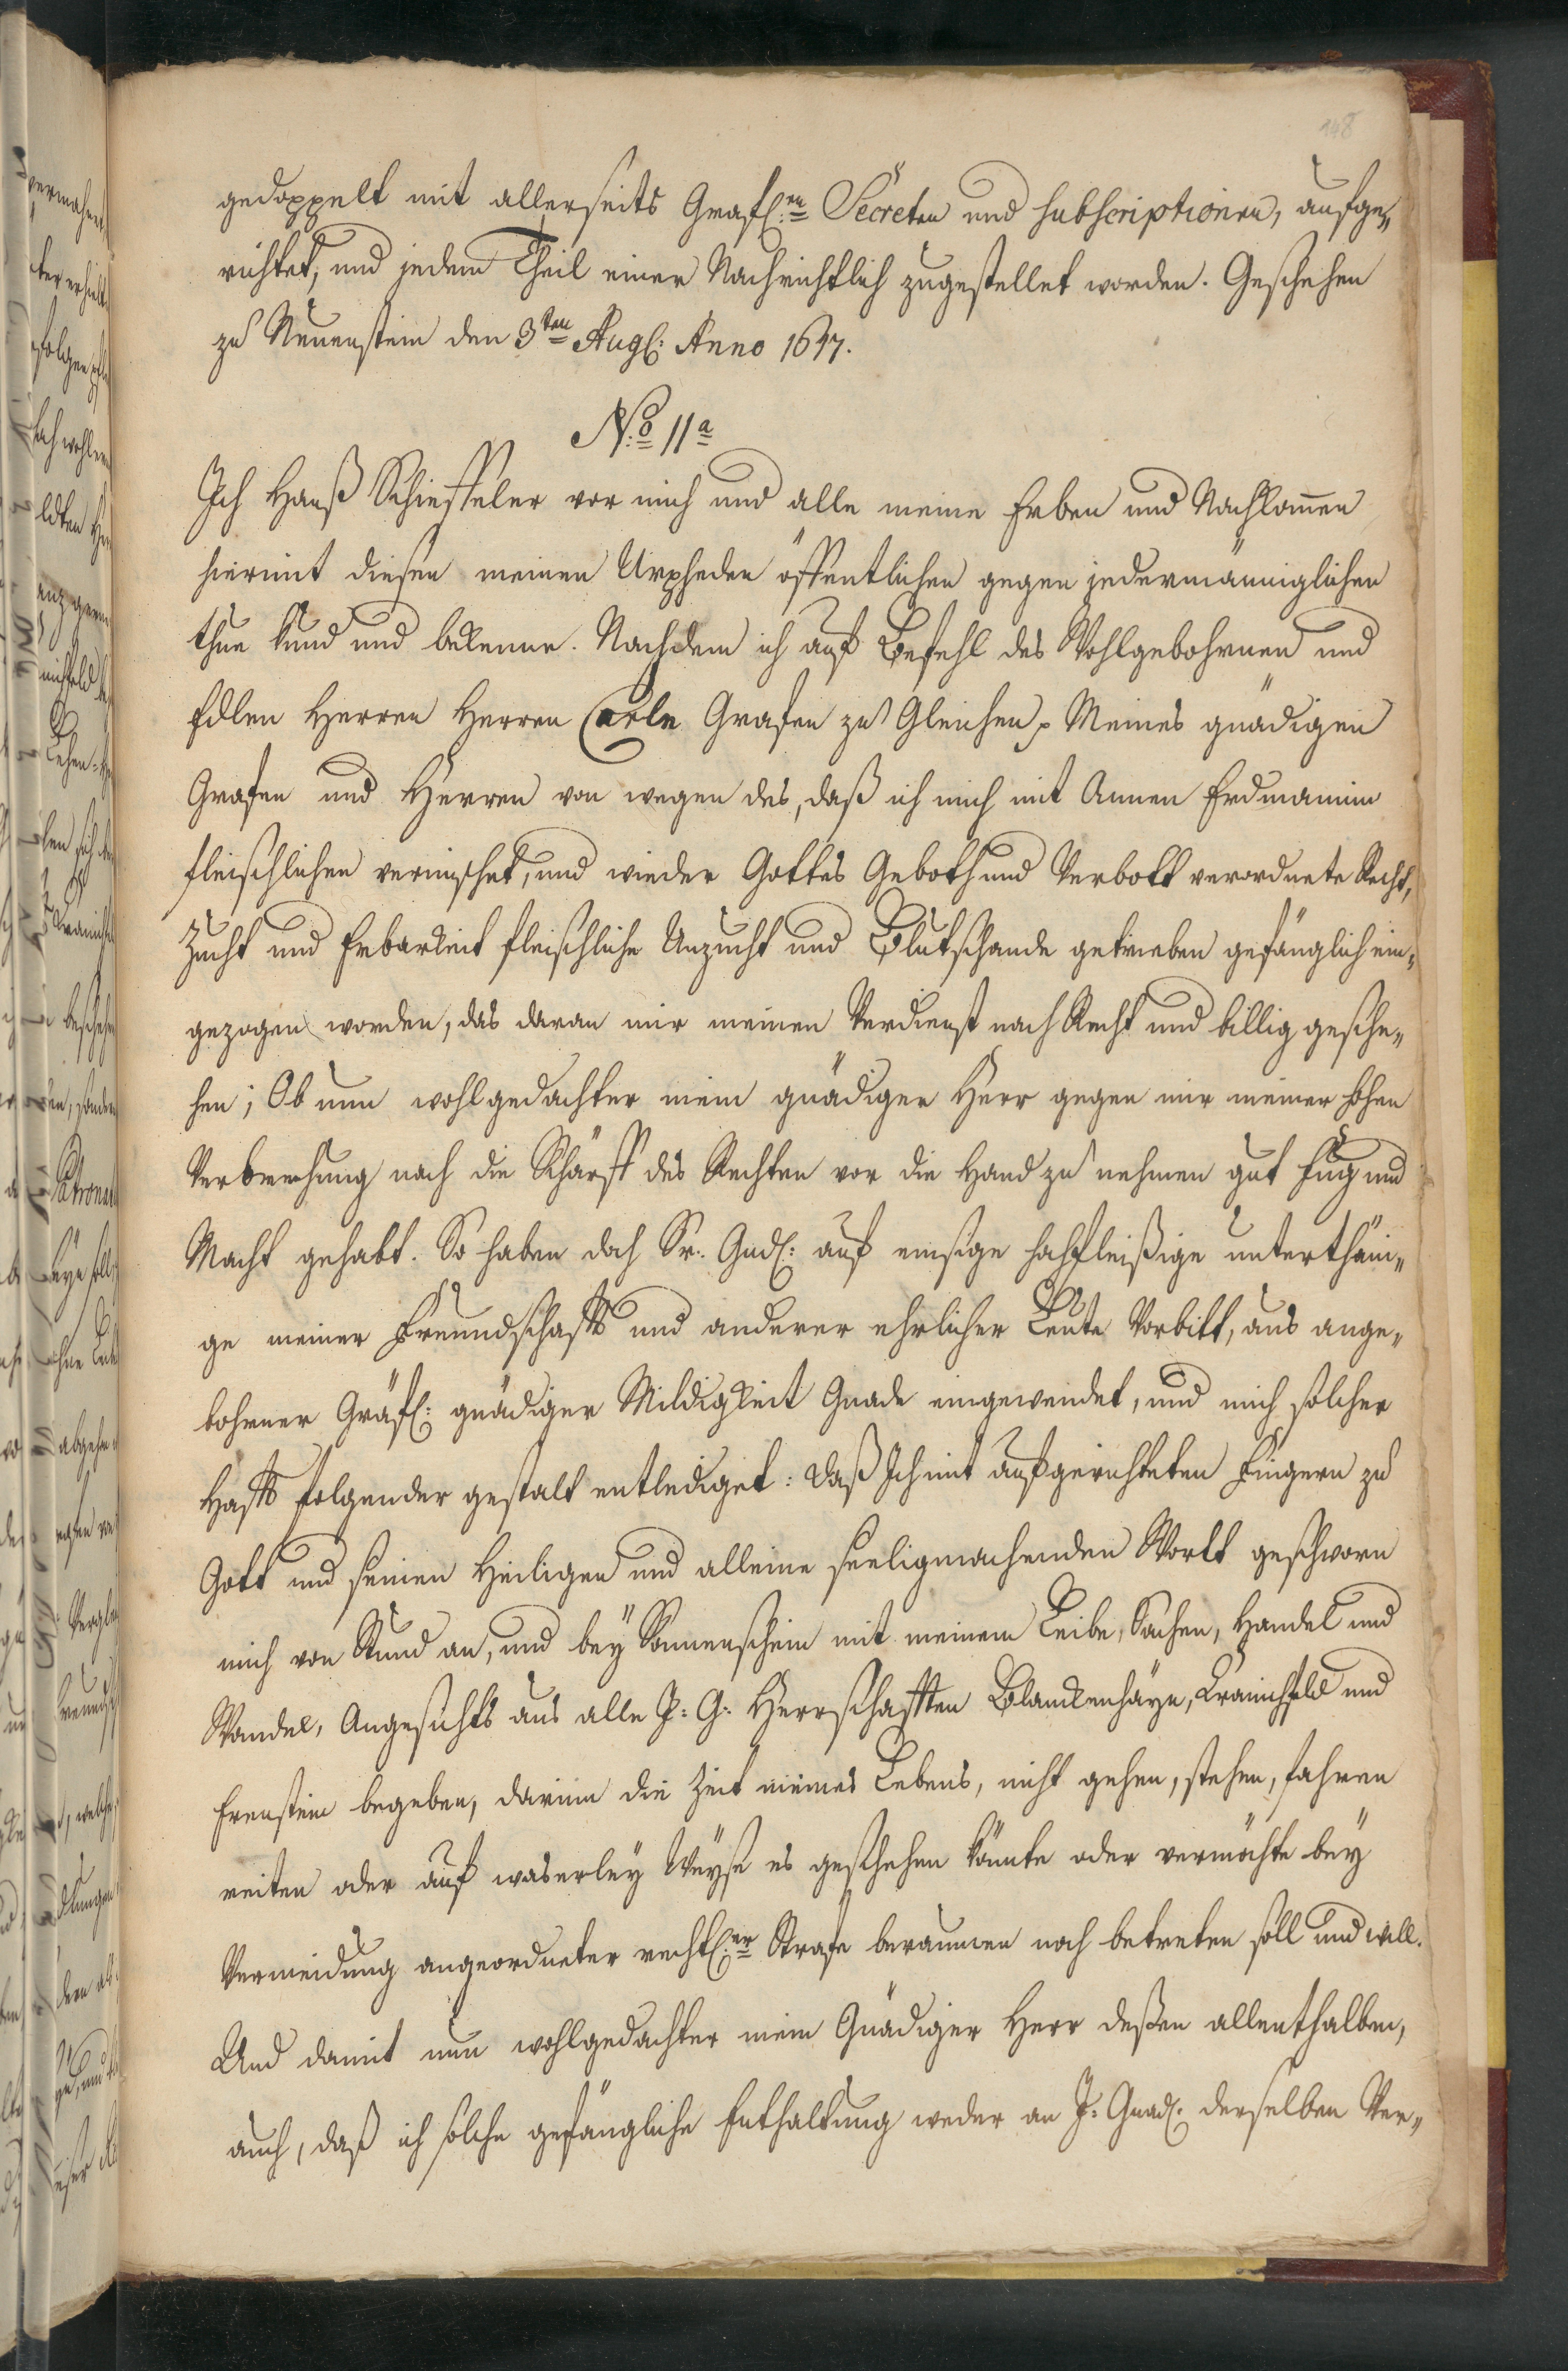 148
gedoppelt mit allerseits Gräfl:en Secreten und subscriptionen, aufge„
richtet, und jedem Theil einer Nachrichtlich zugestellet worden. Geschehen
zu Neuenstein den 3ten Augl: Anno 1647.
No: 11a
Ich Hanß Schieffeler vor mich und alle meine Erben und Nachkom̄en
hiermit diesen meinen Urpheden öffentlichen gegen jedermänniglichen
thue kund und bekenne. Nachdem ich auf Befehl des Wohlgebohrnen und
Edlen Herren Herren Carln Grafen zu Gleichen, Meines gnädigen
Grafen und Herren von wegen des, daß ich mich mit Annen Erdmannin
fleischlichen vermischet, und wieder Gottes Geboth und Verbott verordnete Recht,
Zucht und Erbarkeit fleischliche Unzucht und Blutschande getrieben gefänglich ein„
gezogen worden, das daran mir meinen Verdienst nach Recht und billig gesche„
hen; Ob nun wohlgedachter mein gnädiger Herr gegen mir meiner hohen
Verbrechung nach die Schärff des Rechten vor die Hand zu nehmen gut fug und
Macht gehabt. So haben doch Sr. Gnd: auf emsige hochfleißige unterthäni„
ge meiner Freundschafft und anderer ehrlicher Leute Vorbitt, aus ange„
bohrner Gräfl: gnädiger Mildigkeit Gnade eingewendet, und mich solcher
Hafft folgender gestalt entlediget: daß Ich mit aufgerichteten Fingern zu
Gott und seinen Heiligen und alleine seeligmachenden Wort geschworn
mich von Stund an, und bey Sonnenschein mit meinem Leibe, Sachen, Handel und
Wandel, Angesichts aus alle J: G: Herrschafften Blanckenhayn, Cranichfeld und
Erenstein begeben, darinn die Zeit meines Lebens, nicht gehen, stehen, fahren
reiten oder auf waserley Weyse es geschehen könnte oder vermöchte bey
Vermeidung angeordneter rechtl:er Strafe beraumen noch betreten soll und will.
Und damit nun wohlgedachter mein Gnädiger Herr deßen allenthalben,
auch, daß ich solche gefängliche Enthaltung weder an J: Gnad: derselben Ver„